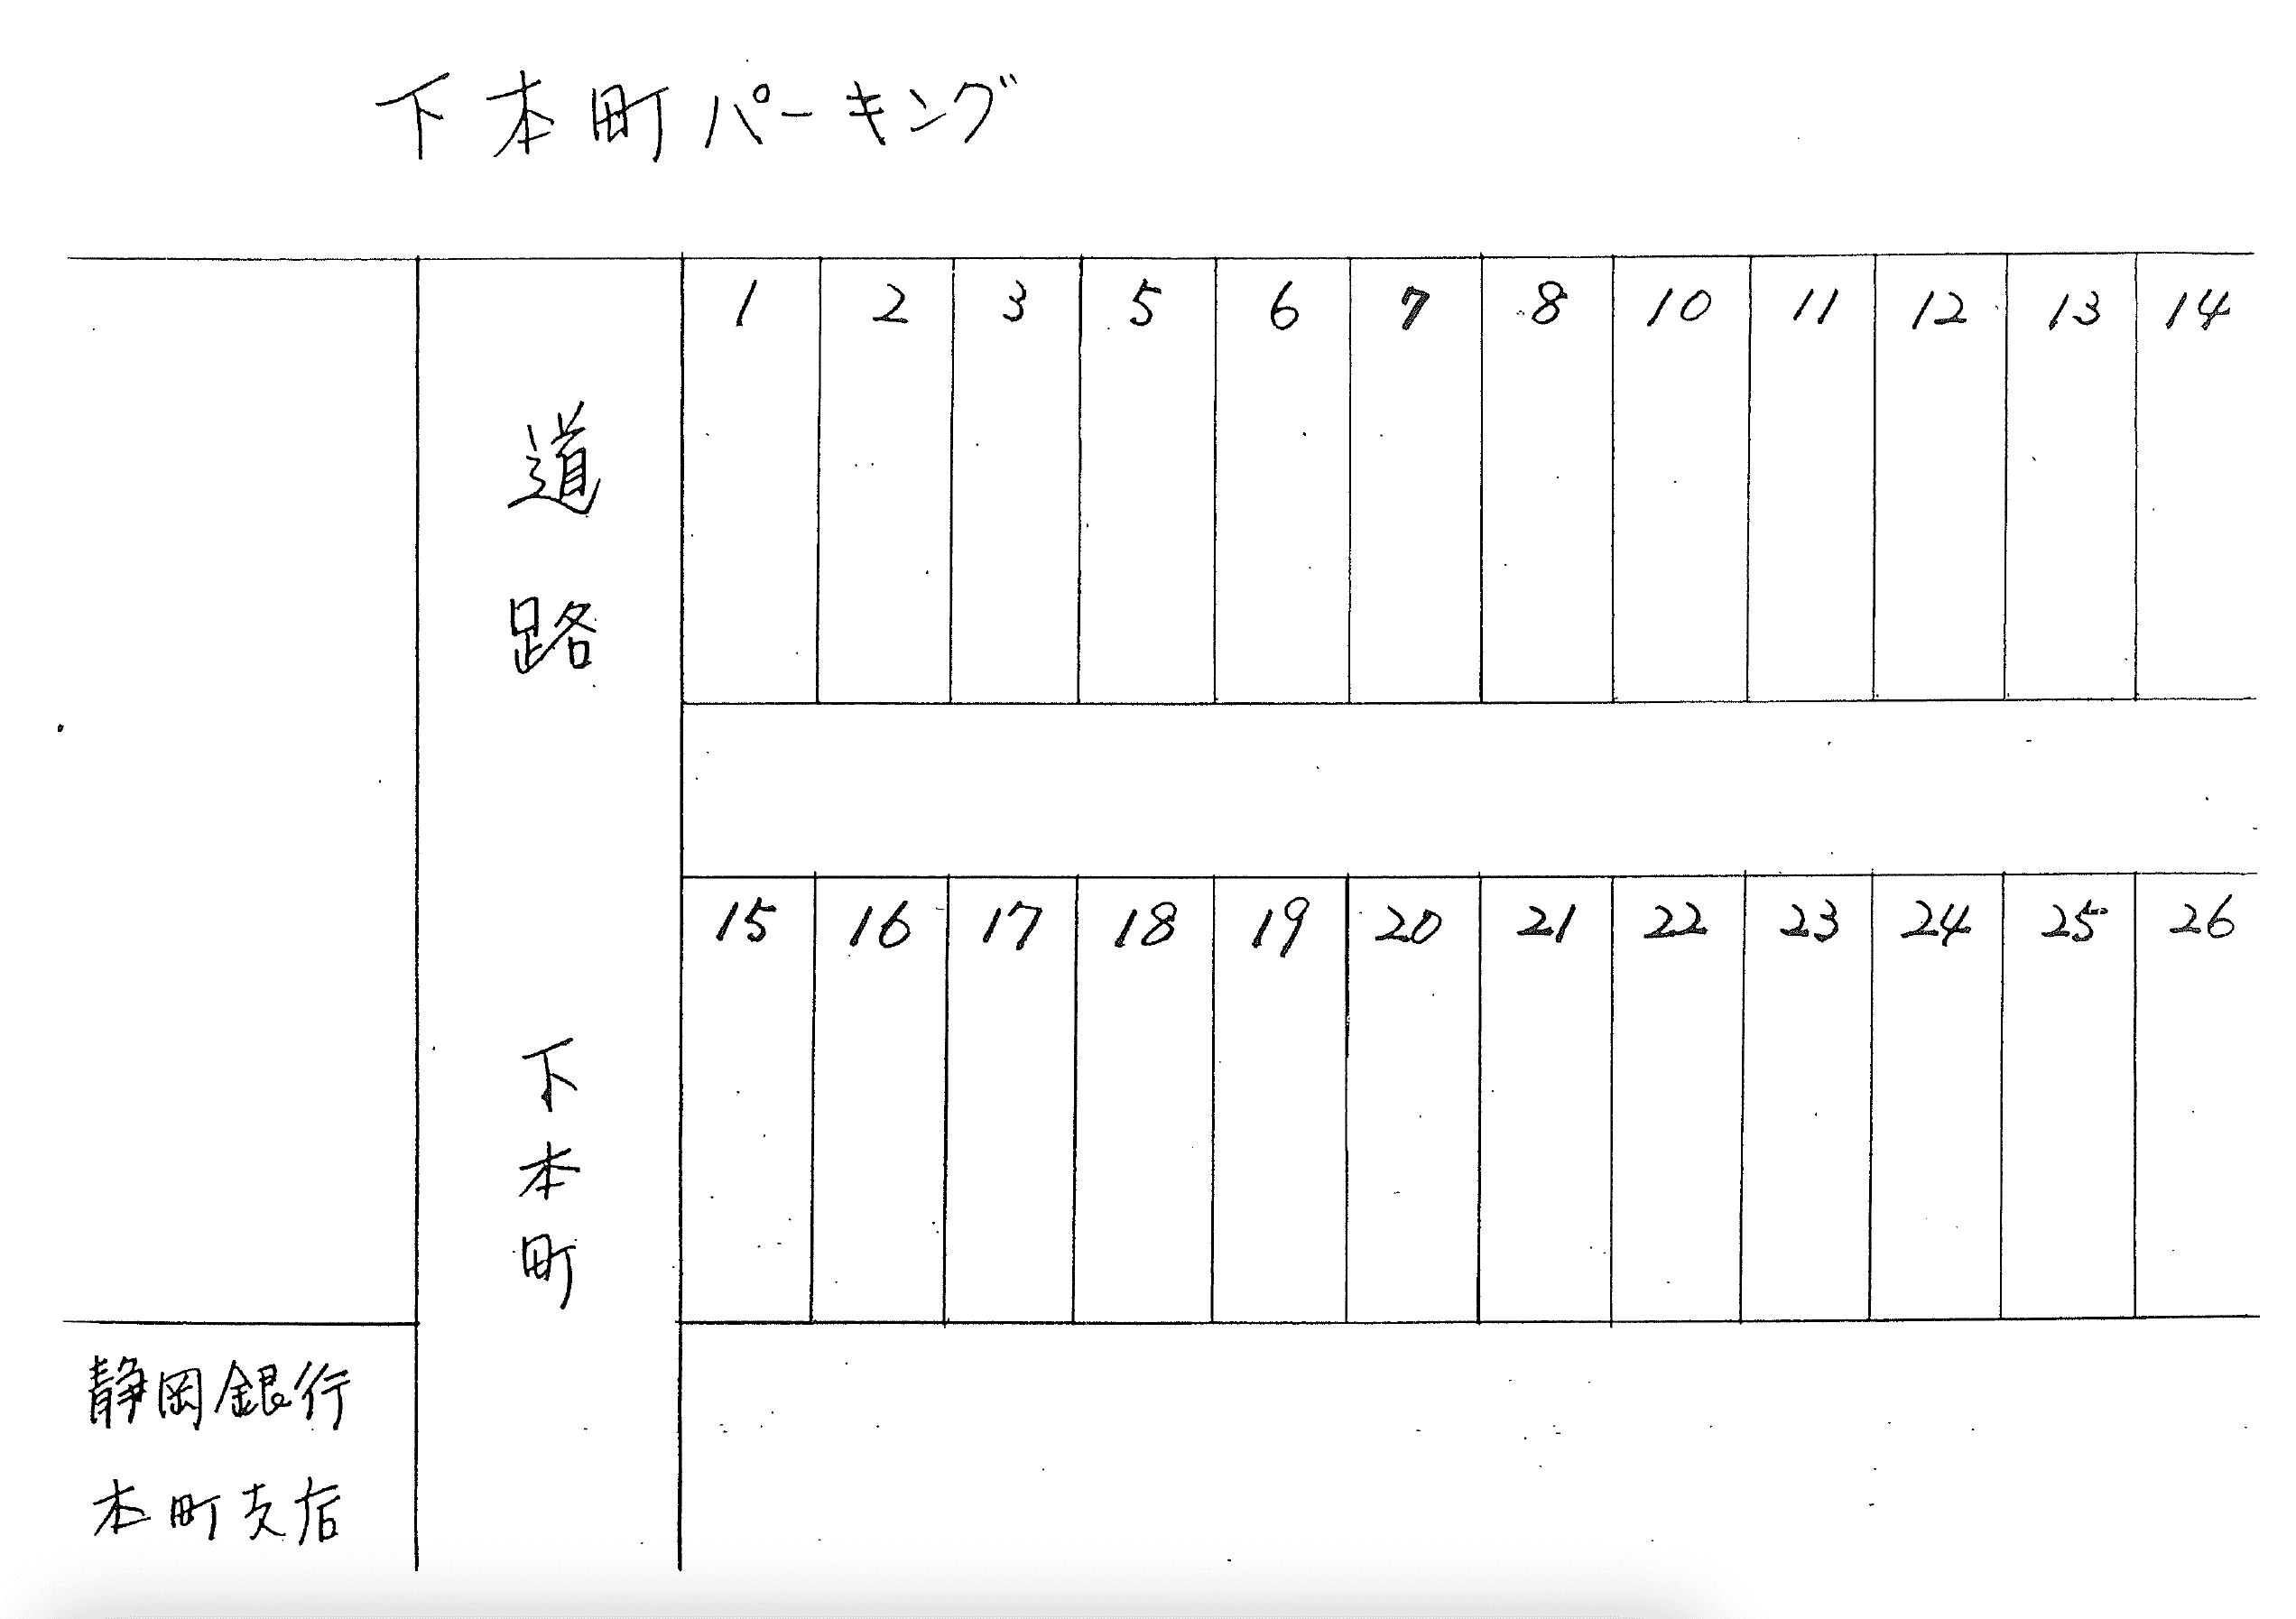 下本町パーキング
1 2 3 5 6 7 8 10 11 12 13 14
道路
15 16 17 18 19 20 21 22 23 24 25 26
下本町
静岡銀行
本町支店